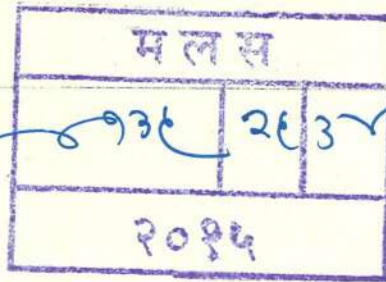 म ल स
१३९ २९ ३४
२०१५